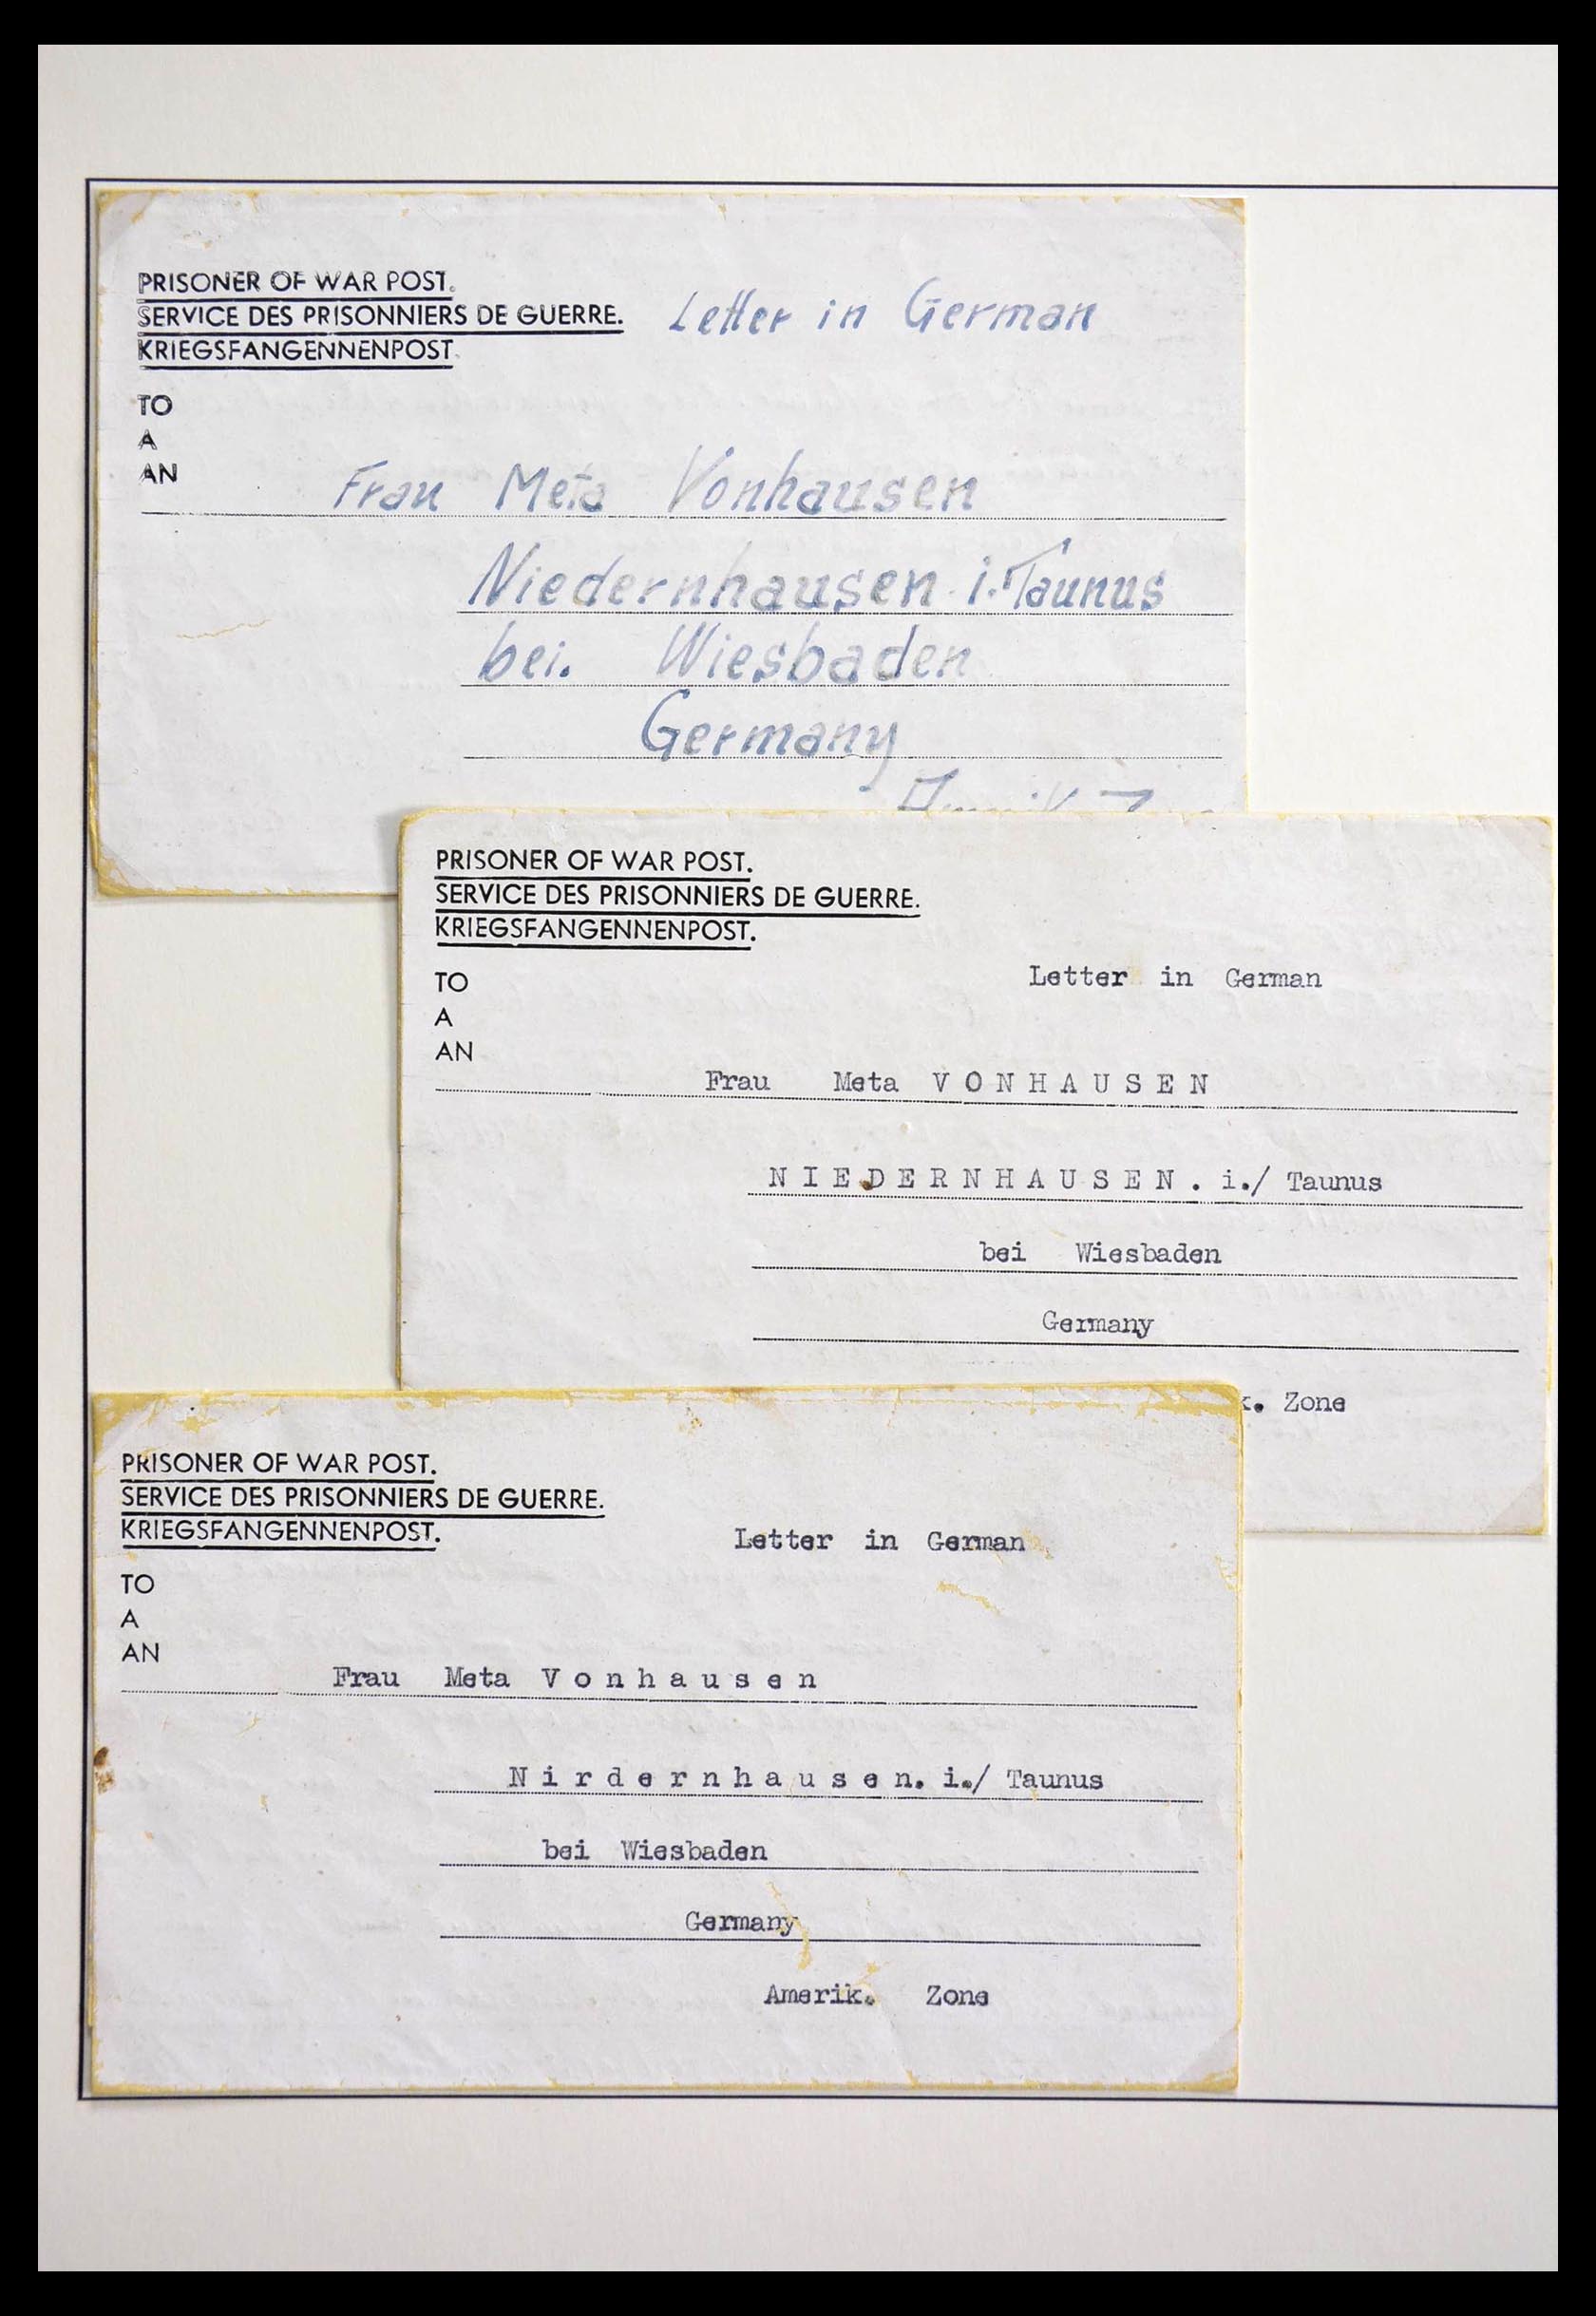 PRISONER OF WAR POST.
SERVICE DES PRISONNIERS DE GUERRE.
Letter in German
KRIEGSFANGENNENPOST.
TO
A
AN
Frau Meta Vonhausen
Niedernhausen i. Taunus
bei. Wiesbaden
Germany
PRISONER OF WAR POST.
SERVICE DES PRISONNIERS DE GUERRE.
KRIEGSFANGENNENPOST.
TO
Letter in German
A
AN
Frau Meta V O N H A U S E N
N I E D E R N H A U S E N . i./ Taunus
bei Wiesbaden
Germany
k. Zone
PRISONER OF WAR POST.
SERVICE DES PRISONNIERS DE GUERRE.
KRIEGSFANGENNENPOST.
Letter in German
TO
A
AN
Frau Meta V o n h a u s e n
N i r d e r n h a u s e n. i./ Taunus
bei Wiesbaden
Germany
Amerik. Zone